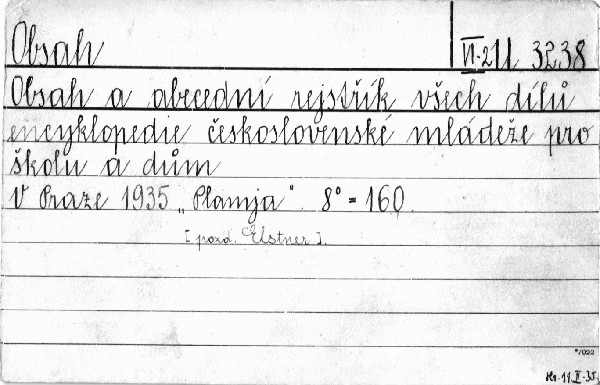 Obsah
VI-211 3238
Obsah a abecední rejstřík všech dílů
encyklopedie československé mládeže pro
školu a dům
V Praze 1935 „Plamja". 8° = 160.
[ pozd. Elstner ].